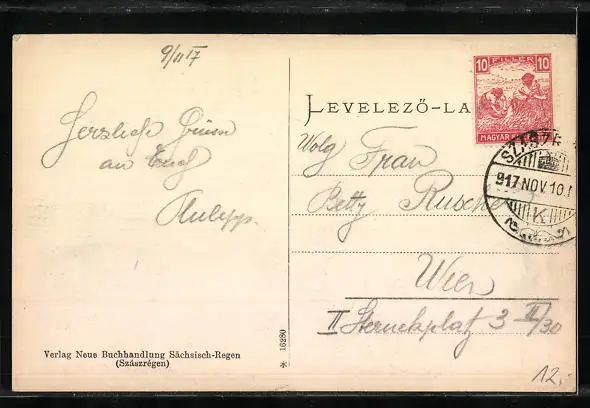 9/11 17
Herzliche Grüße
an Euch
Philipp.
LEVELEZŐ-LA
10 FILLÉR 10
MAGYAR
SZÁSZR
917 NOV 10.
K
Wolg Frau
Betty Rusche
Wien
II Sterneckplatz 3 II/30
16280
Verlag Neue Buchhandlung Sächsisch-Regen
(Szászrégen)
12,-